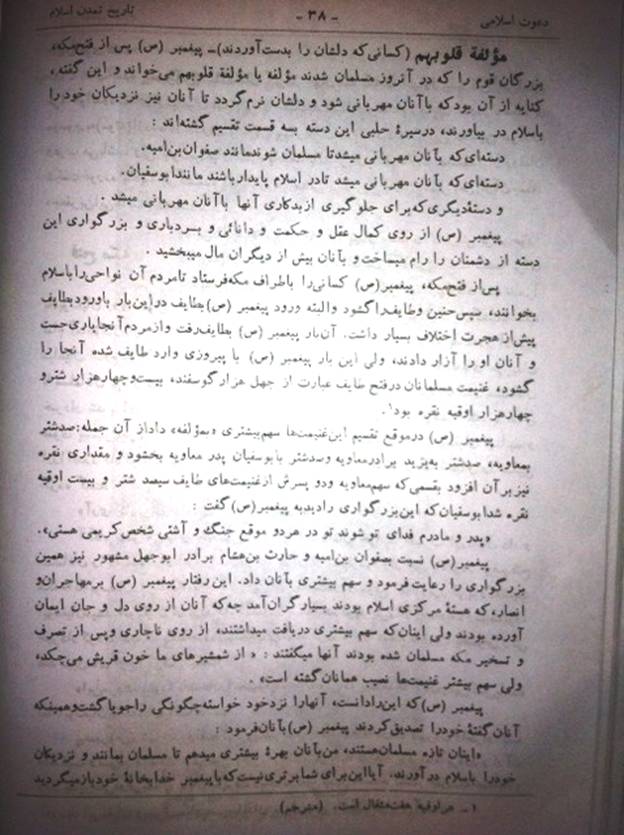 دعوت اسلامی
- ۳۸ -
تاریخ تمدن اسلام
مؤلفة قلوبهم (کسانی‌که دلشان را بدست‌آوردند)ـ پیغمبر (ص) پس از فتح‌مکه،
بزرگان قوم را که در آنروز مسلمان شدند مؤلفه یا مؤلفة قلوبهم می‌خواند و این گفته،
کنایه از آن بودکه باآنان مهربانی شود و دلشان نرم‌گردد تا آنان نیز نزدیکان خود را
باسلام در بیاورند، درسیرۀ حلبی این دسته بسه قسمت تقسیم گشته‌اند :
دسته‌ای‌که بآنان مهربانی میشدتا مسلمان شوندمانند صفوان‌بن‌امیه.
دسته‌ای‌که بآنان مهربانی میشد تادر اسلام پایدارباشند مانندابوسفیان.
و دستۀدیگری‌که‌برای جلوگیری ازبدکاری آنها باآنان مهربانی میشد .
پیغمبر (ص) از روی کمال عقل و حکمت و دانائی و بسردباری و بزرگواری این
دسته از دشمنان را رام میساخت و بآنان بیش از دیگران مال میبخشید .
پس‌از فتح‌مکه، پیغمبر(ص) کسانی‌را باطراف مکه‌فرستاد تامردم آن نواحی‌راباسلام
بخوانند، سپس‌حنین وطایف‌راگشود والبته ورود پیغمبر (ص)بطایف دراین‌بار باورودبطایف
پیش‌از هجرت اختلاف بسیار داشت. آن‌بار پیغمبر (ص) بطایف‌رفت وازمردم آنجایاری‌جست
و آنان او را آزار دادند، ولی این بار پیغمبر (ص) با پیروزی وارد طایف شده آنجا را
گشود، غنیمت مسلمانان درفتح طایف عبارت از چهل هزارگوسفند، بیست‌وچهارهزار شترو
چهارهزار اوقیه نقره بود۱.
پیغمبر (ص) درموقع تقسیم این‌غنیمت‌ها سهم‌بیشتری «بمؤلفه» داداز آن جمله:صدشتر
بمعاویه، صدشتر به‌یزید برادرمعاویه وصدشتر بابوسفیان پدر معاویه بخشود و مقداری نقره
نیزبرآن افزود بقسمی‌که سهم‌معاویه ودو پسرش ازغنیمت‌های طایف سیصد شتر و بیست اوقیه
نقره شدابوسفیان‌که این‌بزرگواری رادیدبه پیغمبر(ص)گفت :
«پدر و مادرم فدای تو شوند تو در هردو موقع جنگ و آشتی شخص‌کریمی هستی».
پیغمبر(ص) نسبت بصفوان بن‌امیه و حارث بن‌هشام برادر ابوجهل مشهور نیز همین
بزرگواری را رعایت‌فرمود و سهم بیشتری بآنان داد. این‌رفتار پیغمبر (ص) برمهاجران‌و
انصار،که هستۀ مرکزی اسلام بودند بسیارگران‌آمد چه‌که آنان از روی دل و جان ایمان
آورده بودند ولی اینان‌که سهم بیشتری دریافت میداشتند، از روی ناچاری وپس از تصرف
و تسخیر مکه مسلمان شده بودند آنها میگفتند : « از شمشیرهای ما خون قریش می‌چکد،
ولی سهم بیشتر غنیمت‌ها نصیب همانان‌گشته است» .
پیغمبر (ص)که این‌رادانست، آنهارا نزدخود خواسته‌چگونکی راجویاگشت‌وهمینکه
آنان‌گفتۀ خودرا تصدیق‌کردند پیغمبر (ص)بآنان‌فرمود :
«اینان تازه مسلمان‌هستند، من‌بآنان بهرۀ بیشتری میدهم تا مسلمان بمانند و نزدیکان
خودرا باسلام درآورند. آیااین‌برای شمابرتری‌نیست‌که‌باپیغمبر خدابخانۀ خودبازمیگردید
۱ـ هراوقیه هفت‌مثقال است. (مترجم)